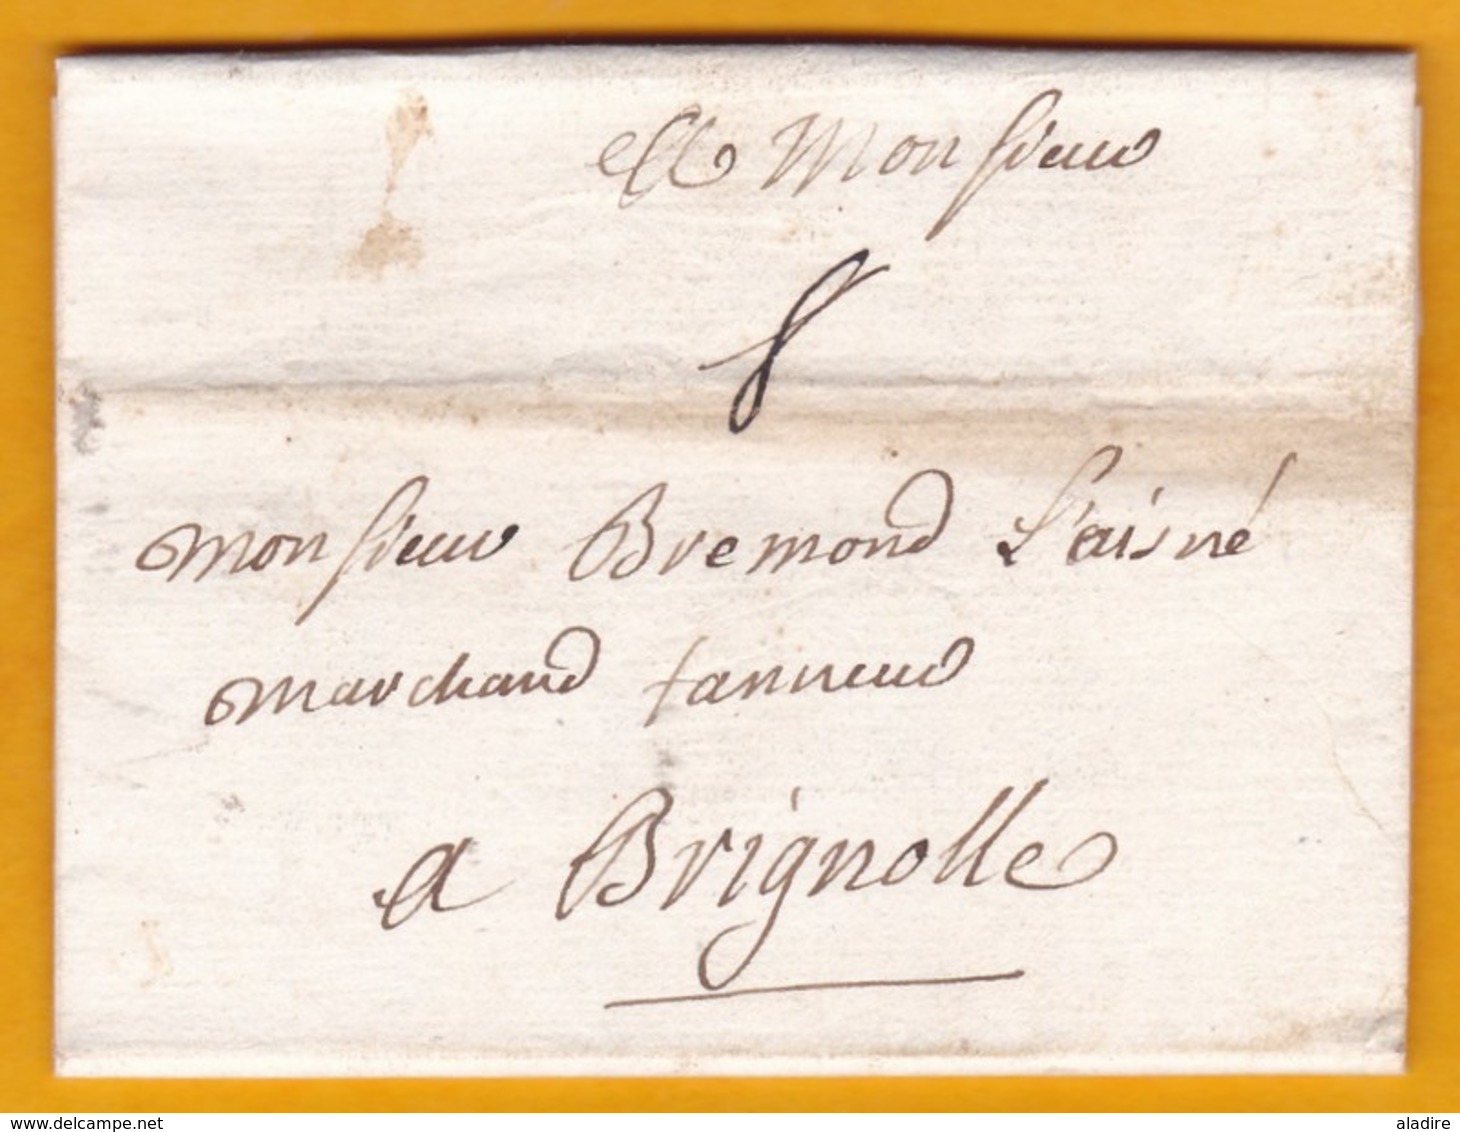 A Monsieur
8
Monsieur Bremond L'aisné
marchand tanneur
a Brignolle
delcampe.net
aladire